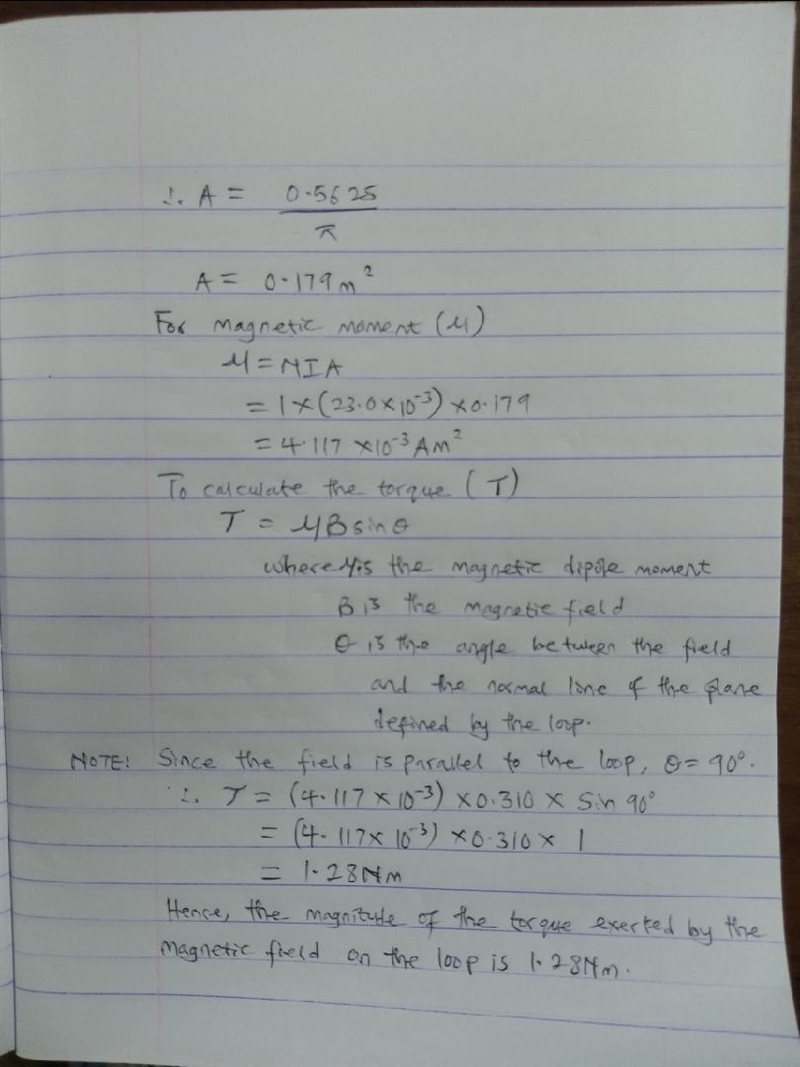 ∴ A = 0.5625
π
A = 0.179 m²
For magnetic moment (μ)
μ = NIA
= 1 × (23.0 × 10⁻³) × 0.179
= 4.117 × 10⁻³ Am²
To calculate the torque (T)
T = μB sin θ
where μ is the magnetic dipole moment
B is the magnetic field
θ is the angle between the field
and the normal line of the plane
defined by the loop.
NOTE: Since the field is parallel to the loop, θ = 90°.
∴ T = (4.117 × 10⁻³) × 0.310 × Sin 90°
= (4.117 × 10⁻³) × 0.310 × 1
= 1.28 Nm
Hence, the magnitude of the torque exerted by the
magnetic field on the loop is 1.28 Nm.